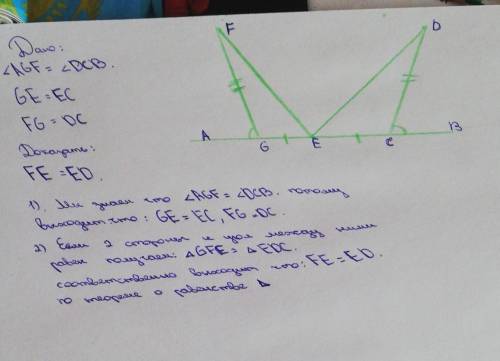 Дано:
∠AGF = ∠DCB.
GE = EC
FG = DC
Доказать:
FE = ED.
F
D
A
G
E
C
B
1). Ми знаем что ∠AGF = ∠DCB. потому
выходит что: GE = EC, FG = DC.
2) Если 2 стороны и угол между ними
равен получаем: △GFE = △EDC.
соответственно выходит что: FE = ED.
по теореме о равенстве △